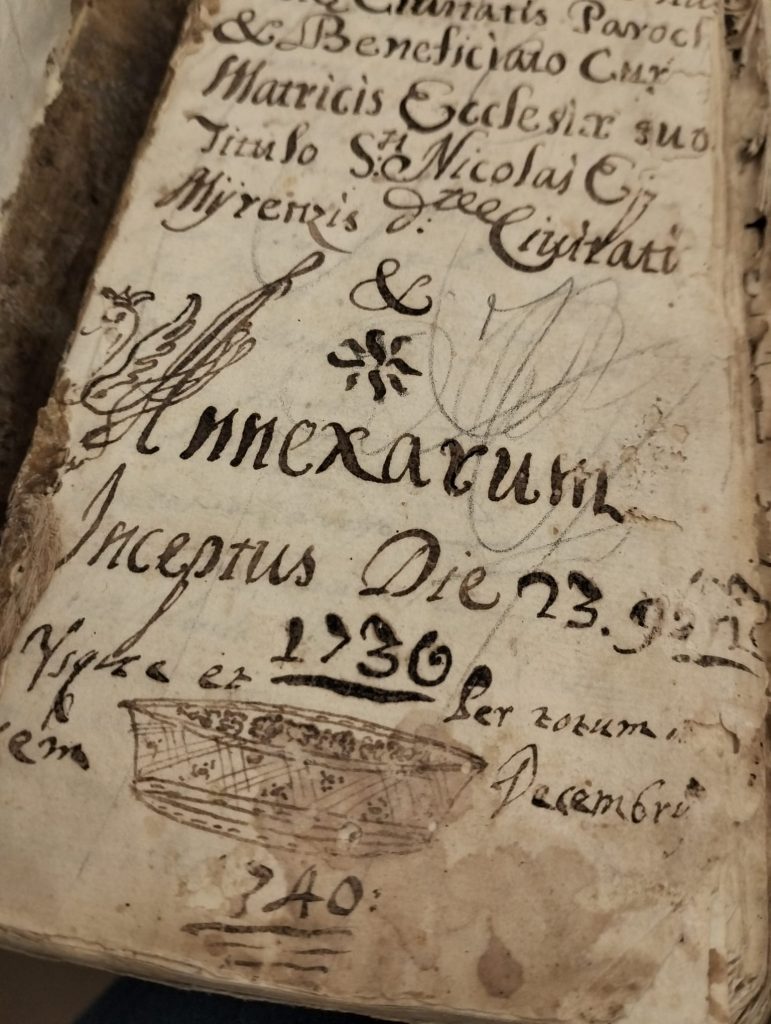 Ciuitatis Paroch
& Beneficiato Cur
Matricis Ecclesiæ suo
Titulo S.ti Nicolaj Ep
Myrensis d.tae Ciuitati
&
Annexarum
Inceptus Die 23. 9
1730
Vsque et Per totum
em Decembrij
1740: